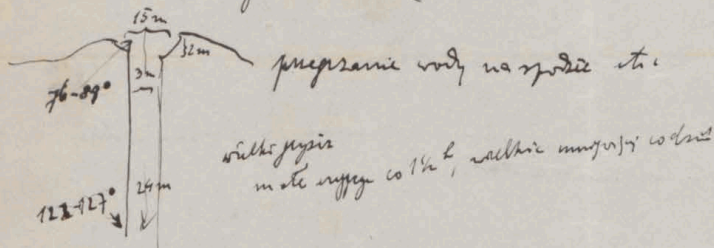 15 m
32 m
przegrzanie wody na spodzie etc
3 m
76-89°
wielki gejzir
małe co 1½ h, wielkie mniej więcej co dzień
24 m
122-127°